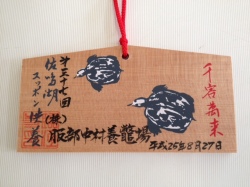 千客萬来
第三十七回
佐鳴湖
スッポン供養
(株)服部中村養鼈場
平成26年8月27日